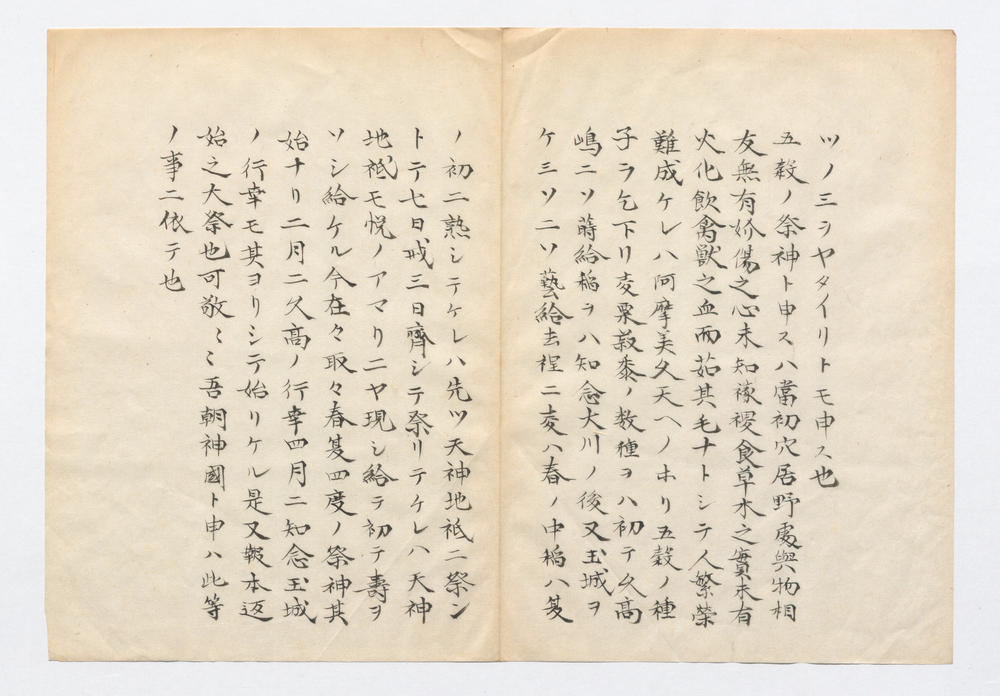 ツノ三ヲヤタイリトモ申ス也
五穀ノ祭神ト申スハ當初穴居野處與物相
友無有妎傷之心未知稼穡食草木之實未有
火化飲禽獸之血而茹其毛ナトシテ人繁榮
難成ケレハ阿摩美久天ヘノホリ五穀ノ種
子ヲ乞下リ麦粟菽黍ノ数種ヲハ初テ久高
嶋ニソ蒔給稲ヲハ知念大川ノ後又玉城ヲ
ケミソニソ藝給去程ニ麦ハ春ノ中稲ハ夏
ノ初ニ熟シテケレハ先ツ天神地祇ニ祭ン
トテ七日戒三日齊シテ祭リテケレハ天神
地祇モ悦ノアマリニヤ現シ給テ初テ壽ヲ
ソシ給ケル今在々取々春夏四度ノ祭神其
始ナリ二月ニ久高ノ行幸四月ニ知念玉城
ノ行幸モ其ヨリシテ始リケル是又報本返
始之大祭也可敬〻〻吾朝神國ト申ハ此等
ノ事ニ依テ也